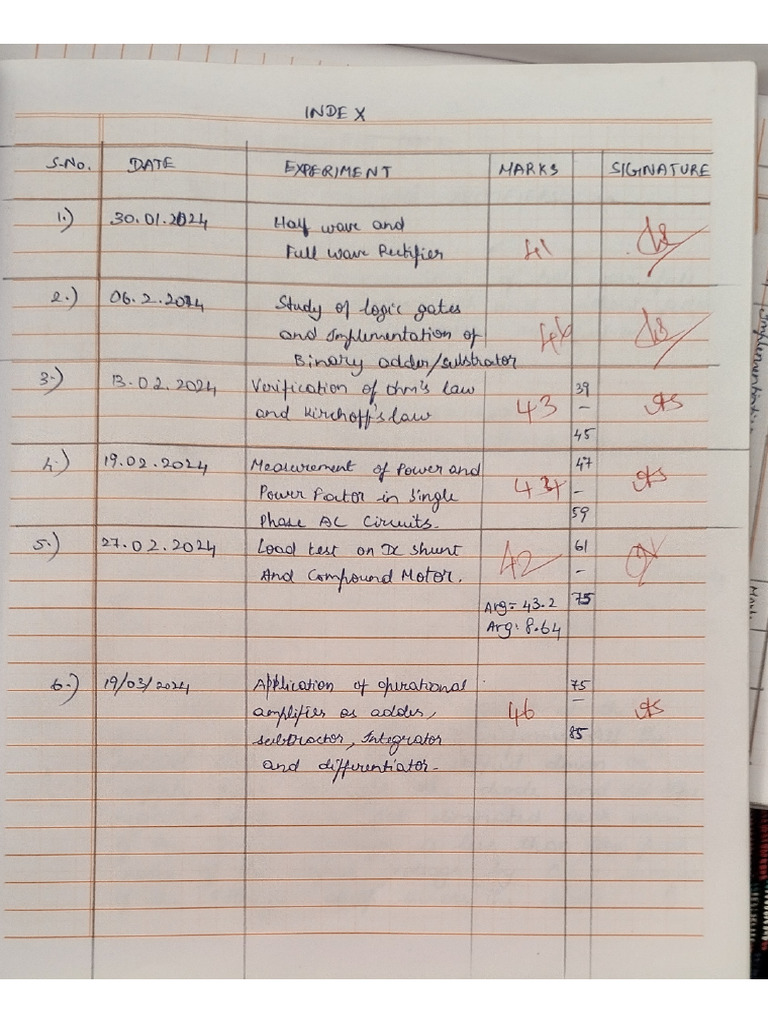 INDEX
S.No. DATE EXPERIMENT MARKS SIGINATURE
1.) 30.01.2024 Half wave and
Full wave Rectifier 41
2.) 06.2.2024 Study of logic gates
and Implementation of
Binary adder/substrator
3.) 13.02.2024 Verification of Ohm's law 39
and Kirchoff's law 43 -
45
4.) 19.02.2024 Measurement of Power and 47
Power Factor in Single 44 -
Phase AC Circuits. 59
5.) 27.02.2024 Load test on DC shunt 42 61
And Compound Motor. -
Avg= 43.2 75
Avg: 8.64
6.) 19/03/2024 Application of operational 75
amplifier as adder, 46 -
subtractor, Integrator 85
and differentiator.